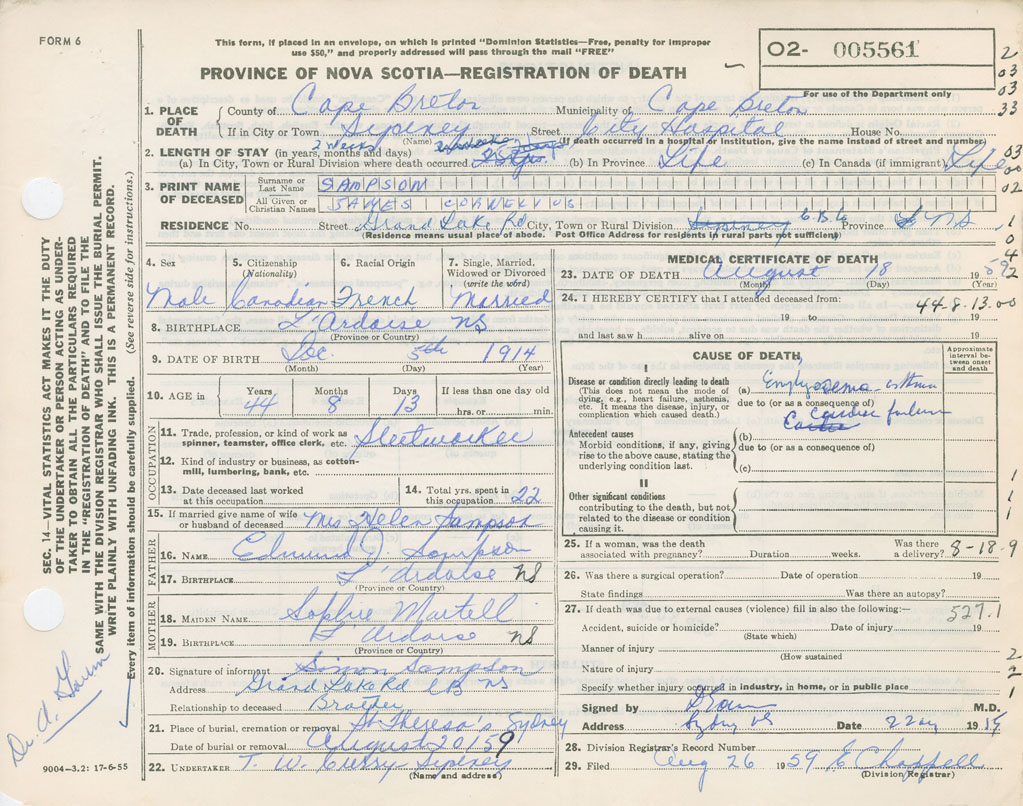 FORM 6
This form, if placed in an envelope, on which is printed "Dominion Statistics—Free, penalty for improper
use $50," and properly addressed will pass through the mail "FREE"
PROVINCE OF NOVA SCOTIA—REGISTRATION OF DEATH
O2- 005561
For use of the Department only
2
03
03
33
1. PLACE OF DEATH { County of Cape Breton Municipality of Cape Breton
If in City or Town Sydney Street City Hospital House No.
(Name) If death occurred in a hospital or institution, give the name instead of street and number)
2. LENGTH OF STAY (in years, months and days) 2 weeks
(a) In City, Town or Rural Division where death occurred (b) In Province Life (c) In Canada (if immigrant) Life
03
00
02
3. PRINT NAME OF DECEASED { Surname or Last Name SAMPSON
All Given or Christian Names JAMES CORNELIUS
RESIDENCE No. Street Grand Lake Rd City, Town or Rural Division Sydney C.B.Co Province NS
(Residence means usual place of abode. Post Office Address for residents in rural parts not sufficient)
1
0
4
2
4. Sex 5. Citizenship (Nationality) 6. Racial Origin 7. Single, Married, Widowed or Divorced (write the word)
Male Canadian French Married
8. BIRTHPLACE L'Ardoise NS
(Province or Country)
9. DATE OF BIRTH Dec. 5th 1914
(Month) (Day) (Year)
10. AGE in { Years Months Days If less than one day old
44 8 13 hrs. or min.
OCCUPATION
11. Trade, profession, or kind of work as spinner, teamster, office clerk, etc. Steelworker
12. Kind of industry or business, as cotton-mill, lumbering, bank, etc.
13. Date deceased last worked at this occupation 14. Total yrs. spent in this occupation 22
15. If married give name of wife or husband of deceased Mrs Helen Sampson
FATHER
16. NAME Edmund J. Sampson
17. BIRTHPLACE L'Ardoise NS
(Province or Country)
MOTHER
18. MAIDEN NAME Sophie Martell
19. BIRTHPLACE L'Ardoise NS
(Province or Country)
20. Signature of informant Simon Sampson
Address Grand Lake Rd CB NS
Relationship to deceased Brother
21. Place of burial, cremation or removal St Theresa's Sydney
Date of burial or removal August 20 1959
22. UNDERTAKER T. W. Curry Sydney
(Name and address)
MEDICAL CERTIFICATE OF DEATH
23. DATE OF DEATH August 18 1959
(Month) (Day) (Year)
24. I HEREBY CERTIFY that I attended deceased from: 44-8-13.00
19 to 19
and last saw h alive on 19
CAUSE OF DEATH
Approximate interval between onset and death
I
Disease or condition directly leading to death
(This does not mean the mode of dying, e.g., heart failure, asthenia, etc. It means the disease, injury, or complication which caused death.)
(a) Emphysema - asthma
due to (or as a consequence of)
Cardiac failure
Antecedent causes
Morbid conditions, if any, giving rise to the above cause, stating the underlying condition last.
(b)
due to (or as a consequence of)
(c)
II
Other significant conditions contributing to the death, but not related to the disease or condition causing it.
1
1
1
25. If a woman, was the death associated with pregnancy? Duration weeks. Was there a delivery? 8-18-9
26. Was there a surgical operation? Date of operation 19
State findings Was there an autopsy?
27. If death was due to external causes (violence) fill in also the following:— 527.1
Accident, suicide or homicide? Date of injury 19
(State which)
Manner of injury
(How sustained
Nature of injury
Specify whether injury occurred in industry, in home, or in public place
2
2
1
Signed by M.D.
Address Sydney NS Date 22 19
28. Division Registrar's Record Number
29. Filed Aug 26 1959 E Chappell
(Division Registrar)
SEC. 14—VITAL STATISTICS ACT MAKES IT THE DUTY
OF THE UNDERTAKER OR PERSON ACTING AS UNDER-
TAKER TO OBTAIN ALL THE PARTICULARS REQUIRED
IN THE "REGISTRATION OF DEATH" AND TO FILE THE
SAME WITH THE DIVISION REGISTRAR WHO SHALL ISSUE THE BURIAL PERMIT.
WRITE PLAINLY WITH UNFADING INK. THIS IS A PERMANENT RECORD.
Every item of information should be carefully supplied. (See reverse side for instructions.)
Dr. A.
9004-3.2: 17-6-55